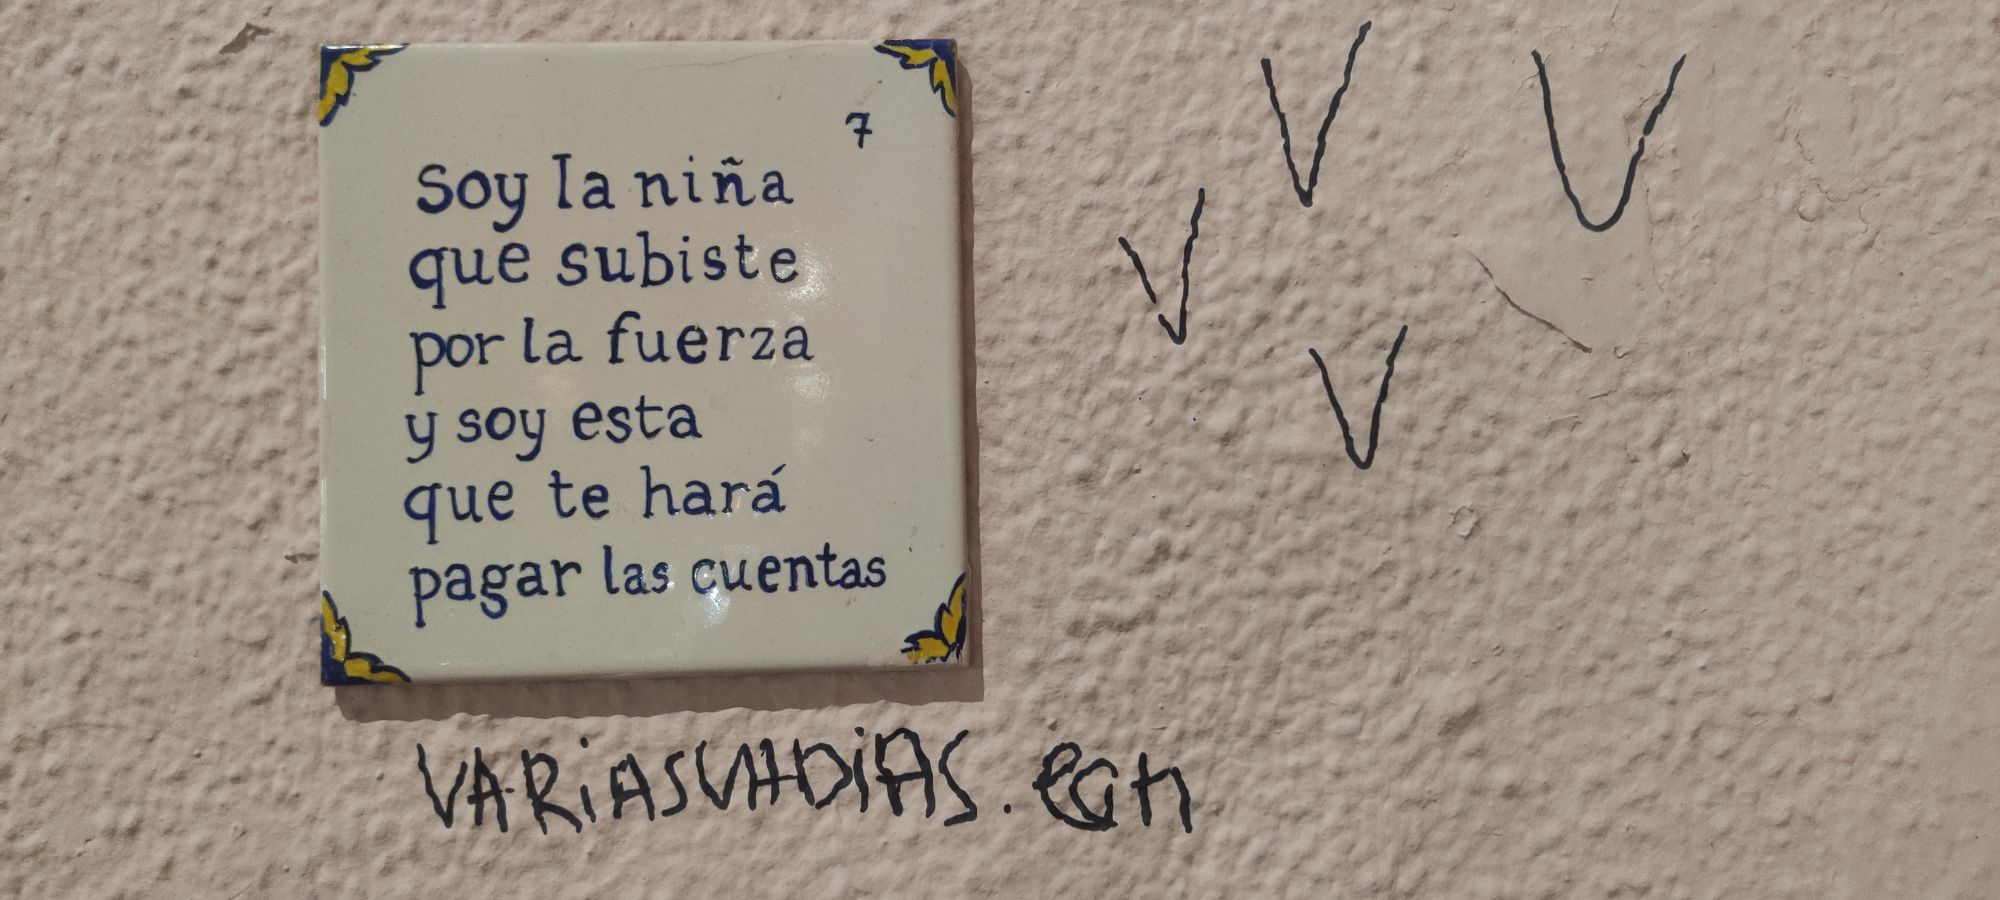 7
soy la niña
que subiste
por la fuerza
y soy esta
que te hará
pagar las cuentas
V V V V